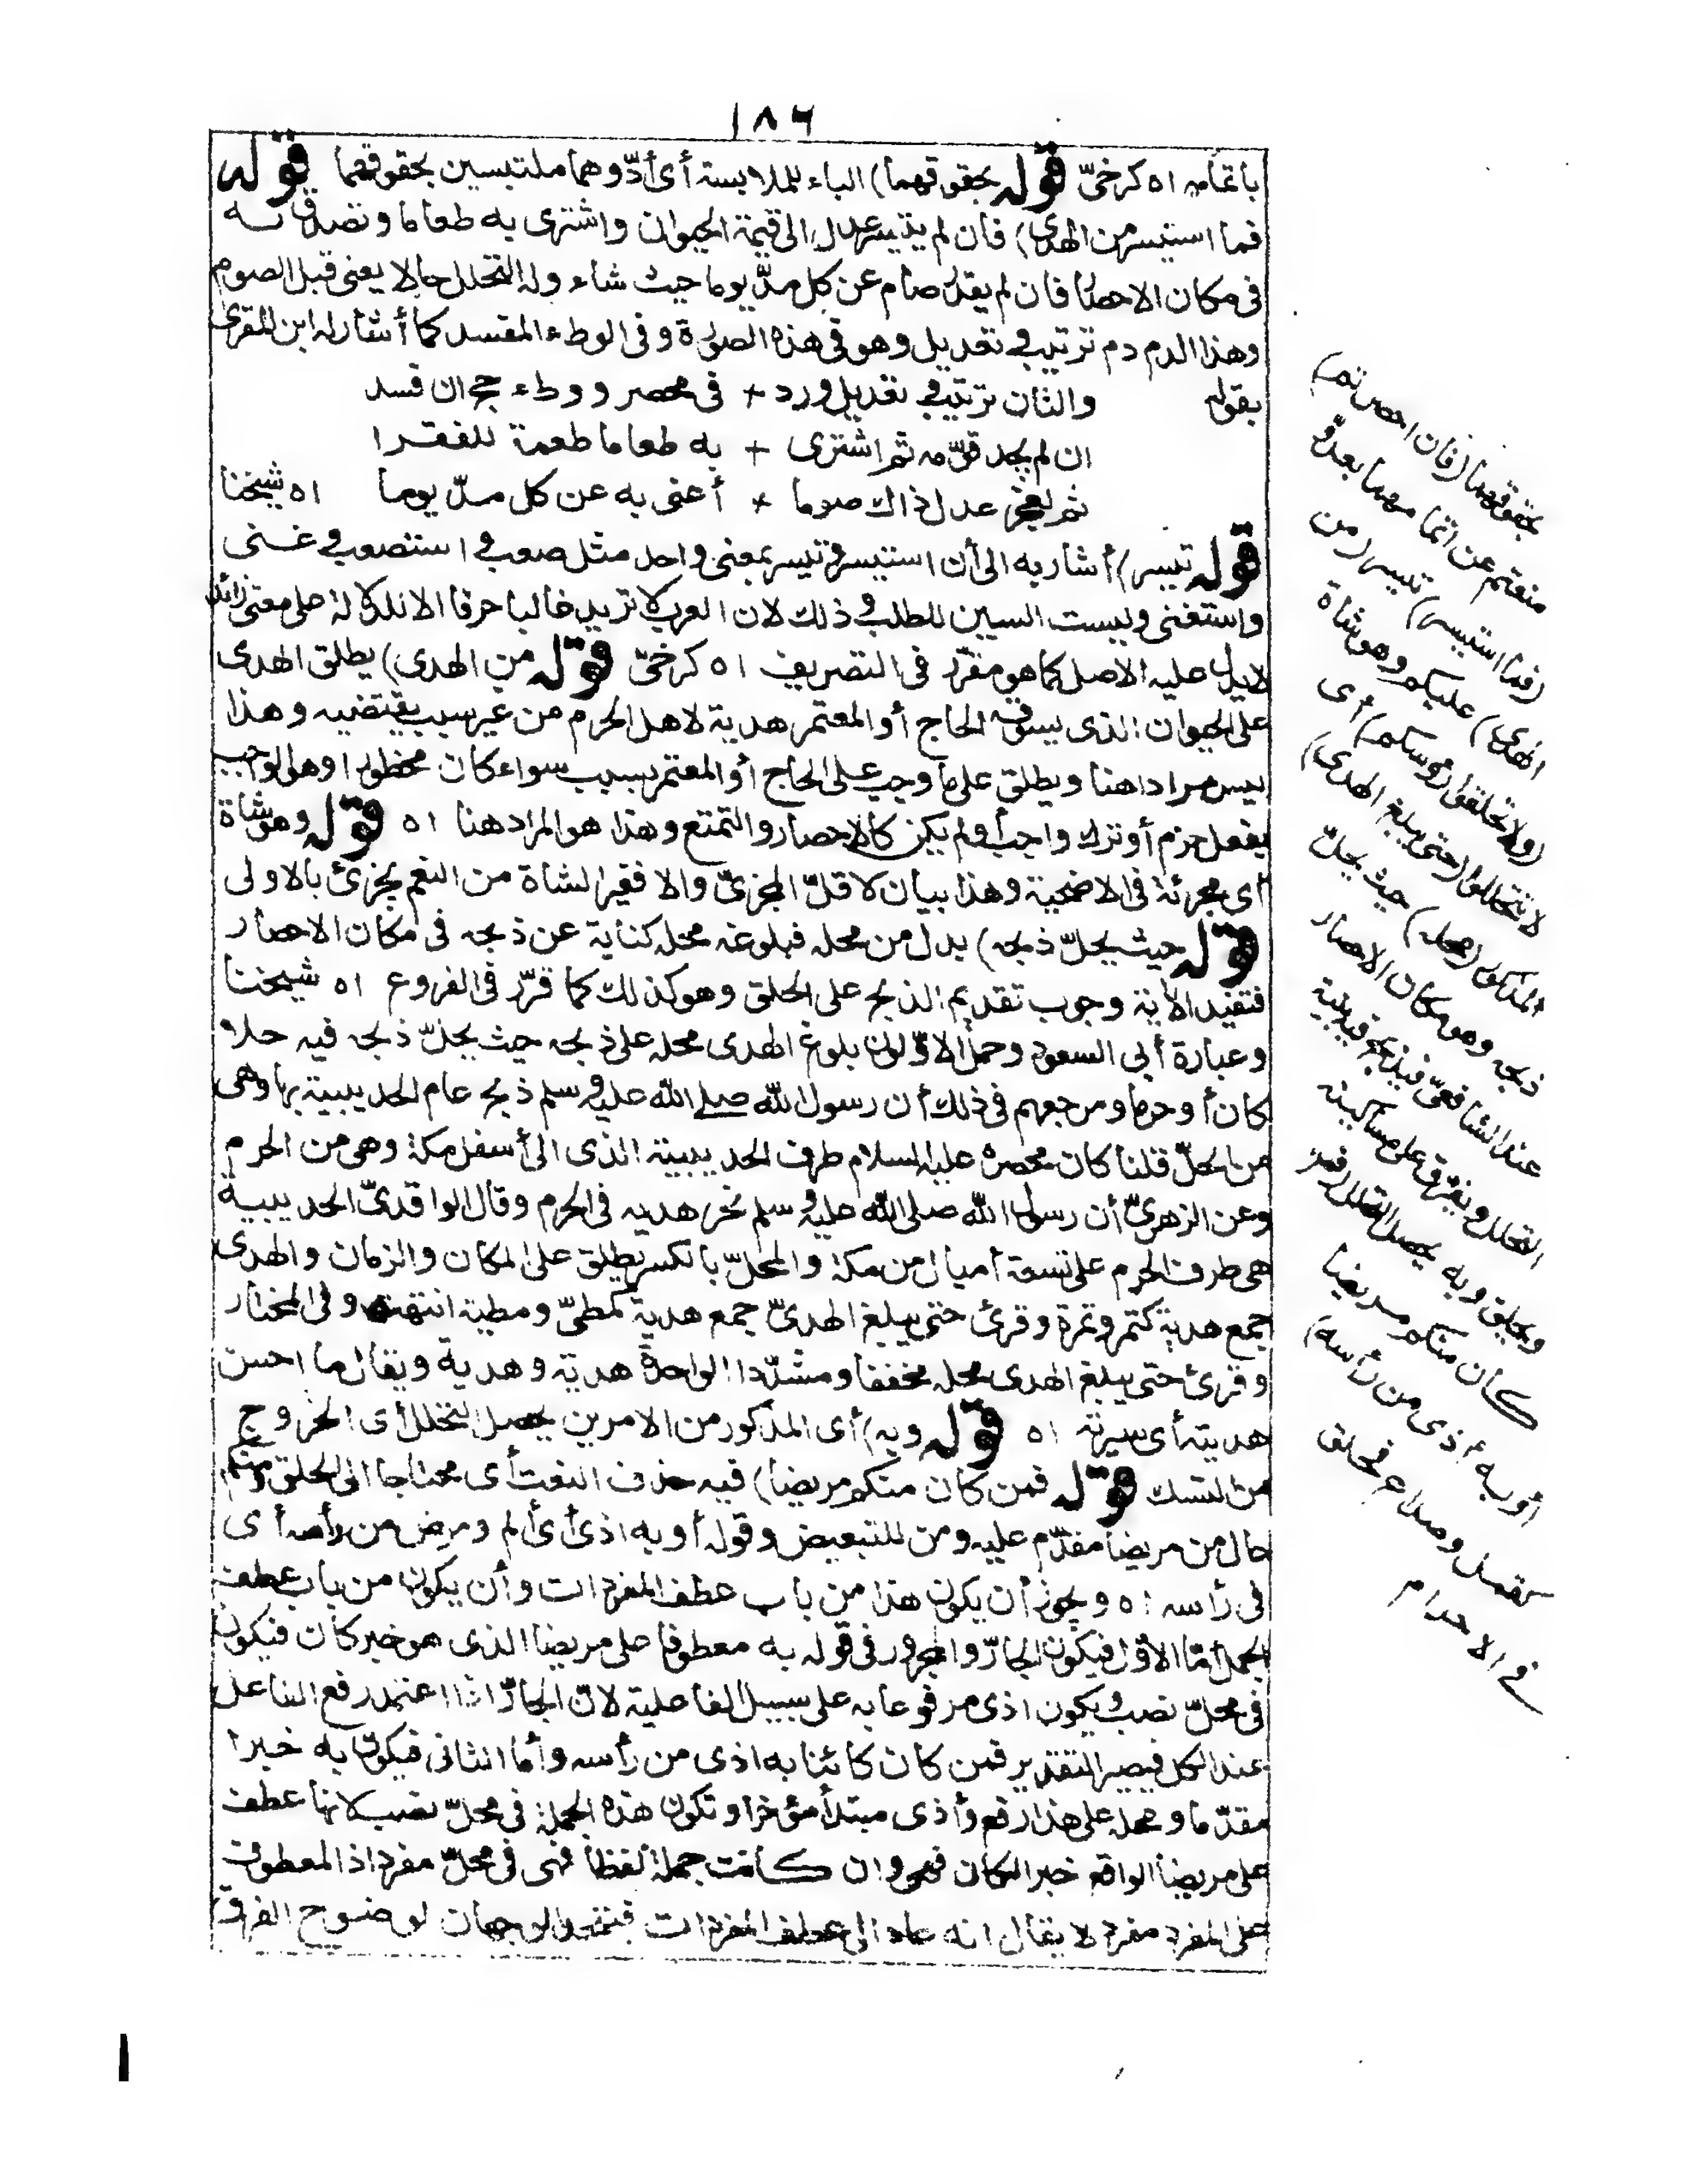 ١٨٦
باتمامه اه كرخىّ قوله بحقوقهما) الباء للملابسة أى أدّوهما ملتبسين بحقوقهما قوله
فما استيسر من الهدى) فان لم يتيسر عدل الى قيمة الحيوان واشترى به طعاما وتصدق به
فى مكان الاحصار فان لم يقدر صام عن كل مدّ يوما حيث شاء وله التحلل حالا يعنى قبل الصوم
وهذا الدم دم ترتيب وتعديل وهو فى هذه الصورة وفى الوطء المفسد كما أشار له ابن المقرى
بقوله والثان ترتيب وتعديل ورد + فى محصر ووطء حج ان فسد
ان لم يجد قوّمه ثم اشترى + به طعاما طعمة للفقرا
ثم لعجز عدل ذاك صوما + أعنى به عن كل مدّ يوما اه شيخنا
قوله تيسر) أشار به الى أن استيسر وتيسر بمعنى واحد مثل صعب واستصعب وغنى
واستغنى وليست السين للطلب وذلك لان العرب لا تزيد غالبا حرفا الا للدلالة على معنى زائد
لا يدل عليه الاصل كما هو مقرّر فى التصريف اه كرخىّ قوله من الهدى) يطلق الهدى
على الحيوان الذى يسوقه الحاج أو المعتمر هدية لاهل الحرم من غير سبب يقتضيه وهذا
ليس مرادا هنا ويطلق على ما وجب على الحاج أو المعتمر بسبب سواء كان محظورا وهو الواجب
بفعل حرم أو ترك واجب أو لم يكن كالاحصار والتمتع وهذا هو المراد هنا اه قوله وهو شاة
أى مجزئة فى الاضحية وهذا بيان لاقلّ المجزئّ والا فغير الشاة من النعم يجزئ بالاولى
قوله حيث يحلّ ذبحه) بدل من محله فبلوغه محله كناية عن ذبحه فى مكان الاحصار
فتفيد الآية وجوب تقديم الذبح على الحلق وهو كذلك كما قرّر فى الفروع اه شيخنا
وعبارة أبى السعود وحمل الاوّلون بلوغ الهدى محله على ذبحه حيث يحلّ ذبحه فيه حلا
كان أو حرما ومرجعهم فى ذلك أن رسول الله صلى الله عليه وسلم ذبح عام الحديبية بها وهى
من الحلّ قلنا كان محصره عليه السلام طرف الحديبية الذى الى أسفل مكة وهى من الحرم
وعن الزهرىّ أن رسول الله صلى الله عليه وسلم نحر هديه فى الحرم وقال الواقدىّ الحديبية
هى طرف الحرم على تسعة أميال من مكة والمحلّ بالكسر يطلق على المكان والزمان والهدى
جمع هدية كتمر وتمرة وقرئ حتى يبلغ الهدىّ جمع هدية كمطىّ ومطية انتهت وفى المختار
وقرئ حتى يبلغ الهدى محله مخففا ومشدّدا الواحدة هدية وهدية ويقال ما احسن
هديته أى سيرته اه قوله وبه) أى المذكور من الامرين يحصل التحلل أى الخروج
من النسك قوله فمن كان منكم مريضا) فيه حذف النعت أى محتاجا الى الحلق ومنكم
حال من مريضا مقدّم عليه ومن للتبعيض وقوله أو به اذى أى ألم ومرض من رأسه أى
فى رأسه اه ويجوز أن يكون هذا من باب عطف المفردات وأن يكون من باب عطف
الجمل أمّا الاوّل فيكون الجارّ والمجرور فى قوله به معطوفا على مريضا الذى هو خبر كان فيكون
فى محلّ نصب ويكون اذى مرفوعا به على سبيل الفاعلية لانّ الجارّ اذا اعتمد رفع الفاعل
عند الكل فيصير التقدير فمن كان كائنا به اذى من رأسه وأما الثانى فيكون به خبرا
مقدّما ومحله على هذا رفع وأذى مبتدأ مؤخرا وتكون هذه الجملة فى محلّ نصب لانها عطف
على مريضا الواقع خبرا لكان فهى وان كانت جملة لفظا فهى فى محلّ مفرد اذ المعطوف
على المفرد مفرد لا يقال انه عاد الى عطف المفردات فيتحد الوجهان لوضوح الفرق
بحقوقهما (فان احصرتم)
منعتم عن اتمامهما بعدوّ
(فما استيسر) تيسر (من
الهدى) عليكم وهو شاة
(ولا تحلقوا رؤسكم) أى
لا تتحللوا (حتى يبلغ الهدى)
المذكور (محله) حيث يحلّ
ذبحه وهو مكان الاحصار
عند الشافعىّ فيذبح فيه بنية
التحلل ويفرّق على مساكينه
ويحلق وبه يحصل التحلل (فمن
كان منكم مريضا
أو به أذى من رأسه)
كقمل وصداع فحلق
فى الاحرام